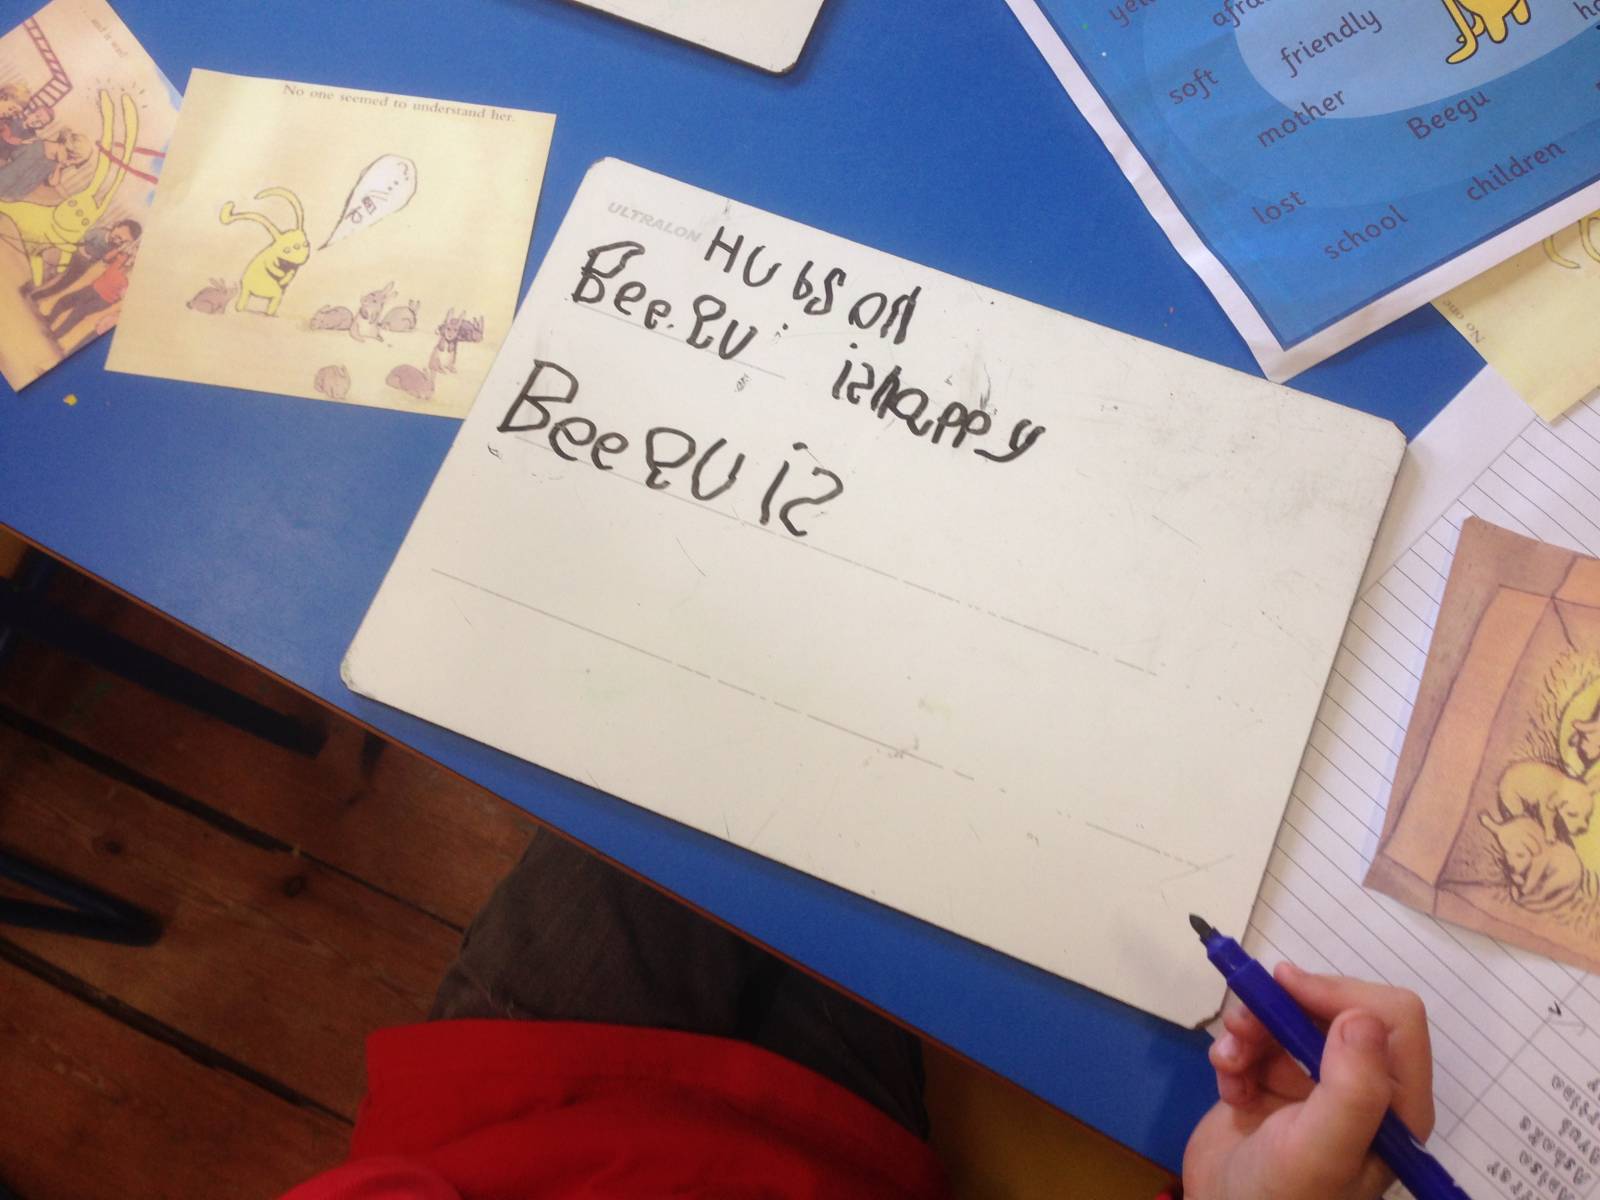 and it was!
No one seemed to understand her.
ULTRALON
HUbSON
BeegU ishappy
BeegU is
friendly
soft
mother
Beegu
lost
children
school
No one